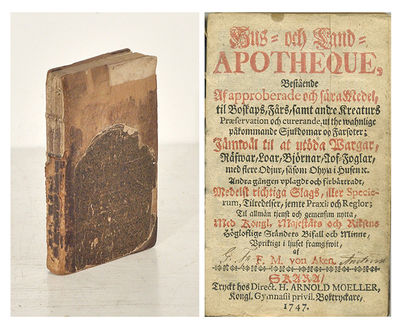 Hus- och Land-
APOTHEQUE,
Bestående
Af approberade och rara Medel,
til Boskaps, Fårs, samt andre Kreaturs
Præservation och curerande, uti the wahnlige
påkommande Sjukdomar og Farsoter;
Jämwäl til at utöda Wargar,
Räfwar, Loar, Björnar, Rof-Foglar,
med flere Odjur, såsom Ohyra i Husen &c.
Andra gången uplagdt och förbättradt,
Medelst richtiga Slags, eller Specie-
rum, Tilredelser, jemte Praxi och Reglor;
Til allmän tjenst och gemensam nytta,
Med Kongl. Majestäts och Riksens
Högloflige Ständers Bifall och Minne,
Upriktigt i ljuset framgifwit,
af
F. M. von Aken.
SKARA,
Tryckt hos Direct. H. ARNOLD MOELLER,
Kongl. Gymnasii privil. Boktryckare,
1747.